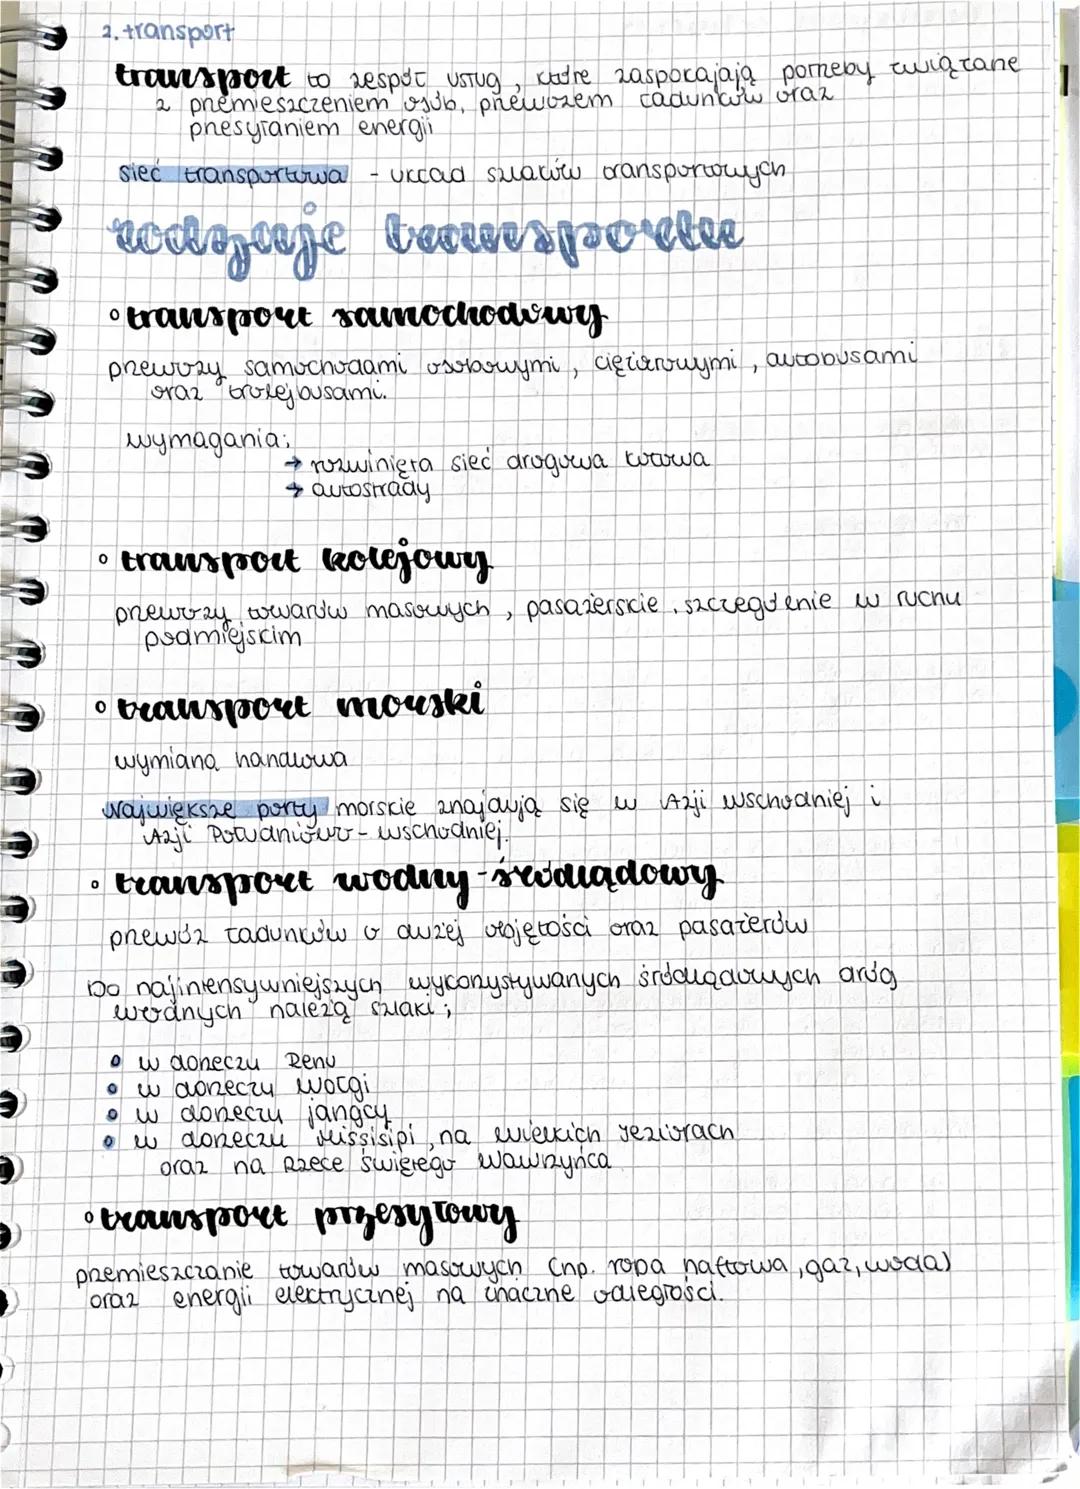 2. transport
transport to zespół usług, które zaspokajają potrzeby związane
z przemieszczeniem osób, przewozem ładunków oraz
przesyłaniem energii
sieć transportowa - układ szlaków transportowych
rodzaje transportu
• transport samochodowy
przewozy samochodami osobowymi, ciężarowymi, autobusami
oraz trolejbusami.
wymagania:
→ rozwinięta sieć drogowa kołowa
→ autostrady
• transport kolejowy
przewozy towarów masowych, pasażerskie, szczególnie w ruchu
podmiejskim
• transport morski
wymiana handlowa
Największe porty morskie znajdują się w Azji wschodniej i
Azji Południowo-wschodniej.
• transport wodny-śródlądowy
przewóz ładunków o dużej objętości oraz pasażerów
Do najintensywniejszych wykorzystywanych śródlądowych dróg
wodnych należą szlaki;
• w dorzeczu Renu
• w dorzeczu Wołgi
• w dorzeczu jangcy
• w dorzeczu Missisipi, na wielkich Jeziorach
oraz na Rzece świętego Wawrzyńca
• transport przesyłowy
przemieszczanie towarów masowych (np. ropa naftowa, gaz, woda)
oraz energii elektrycznej na znaczne odległości.